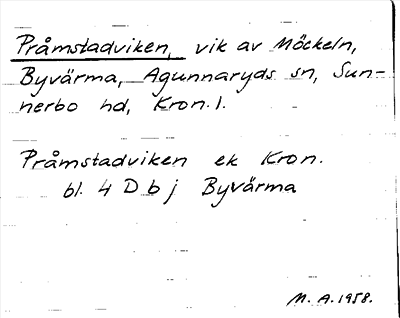 Pråmstadviken, vik av Möckeln,
Byvärma, Agunnaryds sn, Sun-
nerbo hd, Kron. l.
Pråmstadviken ek Kron.
bl. 4 D b j Byvärma
M. A. 1958.